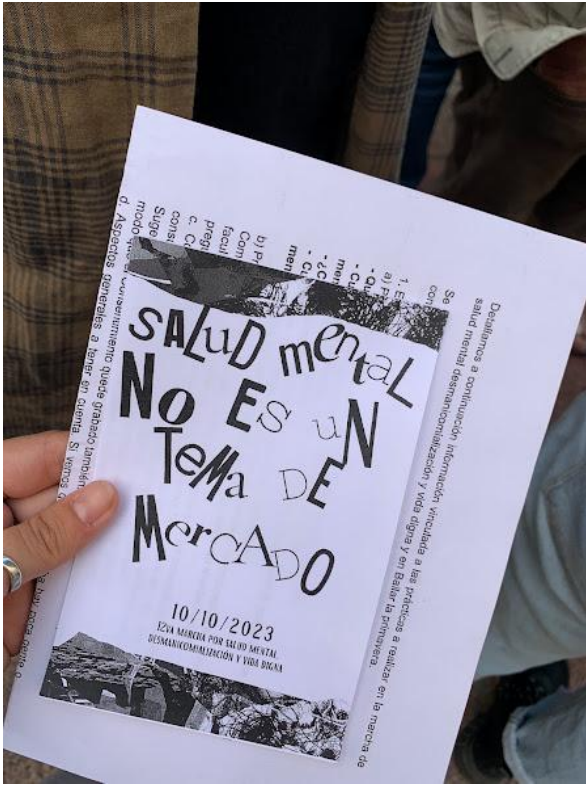 SALUD mental
No Es uN
TeMa DE
MercADO
10/10/2023
12VA MARCHA POR SALUD MENTAL
DESMANICOMIALIZACIÓN Y VIDA DIGNA
Detallamos a continuación información vinculada a las prácticas a realizar en la marcha de
salud mental desmanicomialización y vida digna y en Bailar la primavera.
Se
con
1. E
a)
b)
c.
modo
consentimiento quede grabado también
d. Aspectos generales a tener en cuenta. Si vemos
hay poca gente o